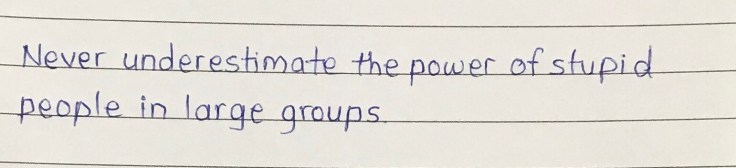 Never underestimate the power of stupid
people in large groups.